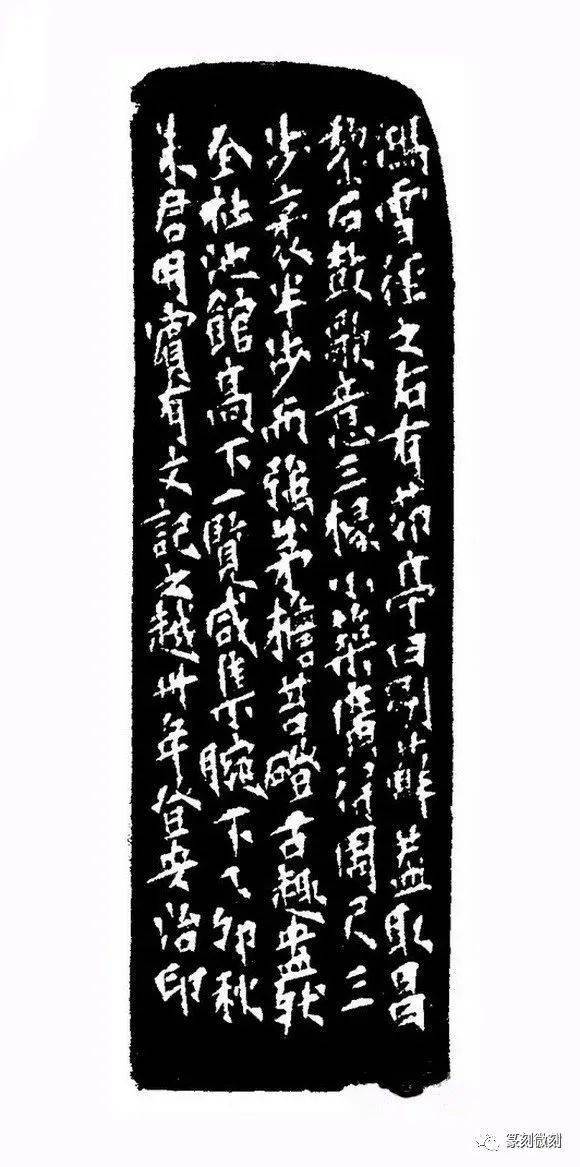 鴻雪徑之右有茆亭曰剔蘚蓋取昌
黎石鼓歌意三椽小築廣得周尺三
步袤半步而強茅檐苔磴古趣盎然
全社池館高下一覽咸集腕下乙卯秋
朱君明賓有文記之越卅年登安治印
篆刻微刻